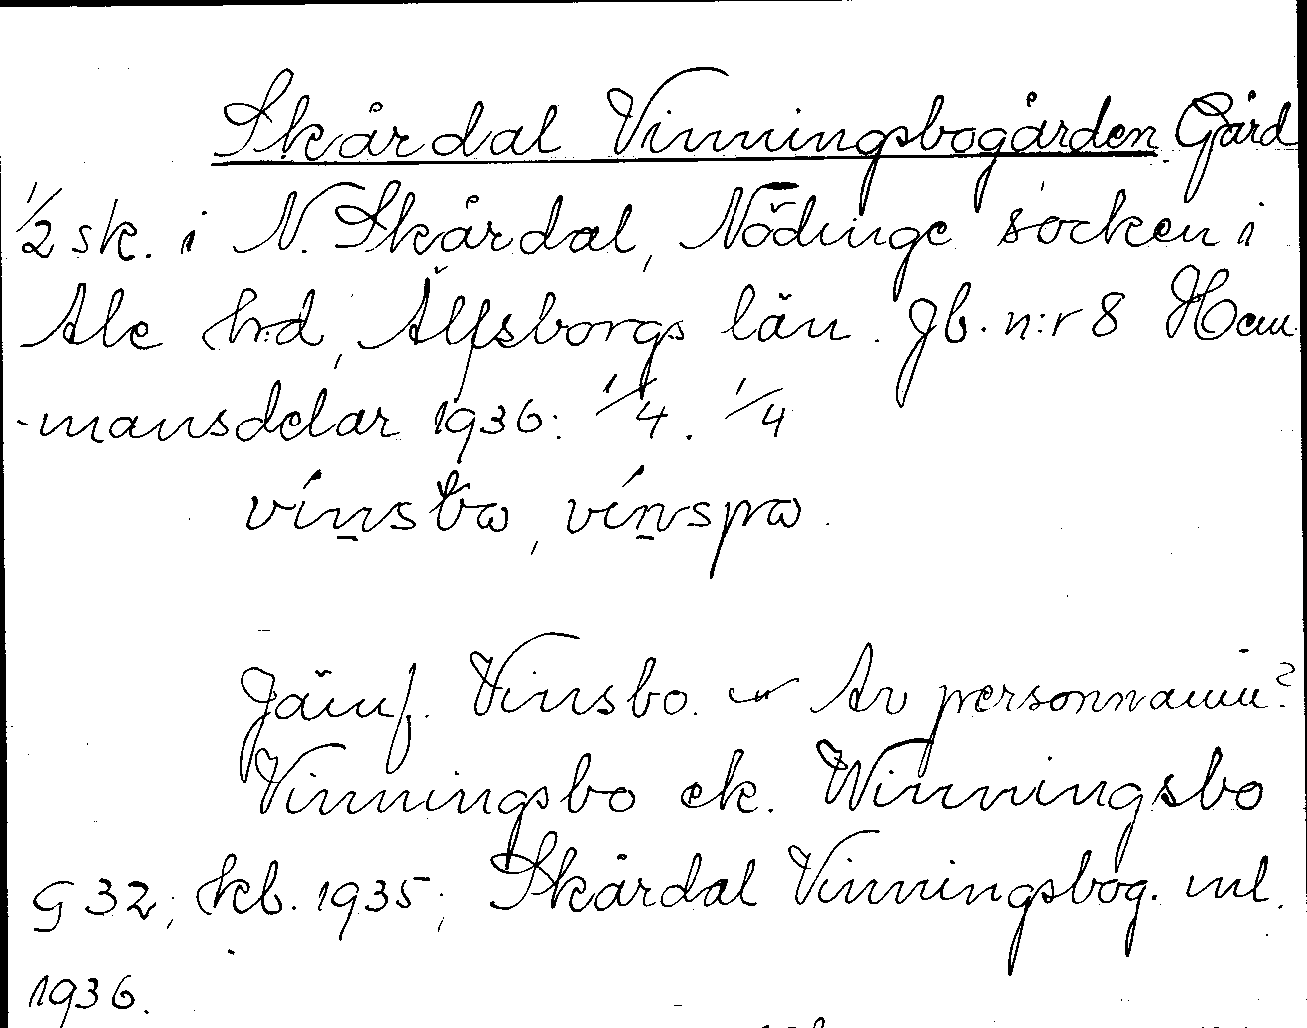 Skårdal Vinningsbogården Gård
1/2 sk. i N. Skårdal, Nödinge socken i
Ale h:d, Älfsborgs län. Jb. n:r 8 Hem
-mansdelar 1936: 1/4. 1/4
vínsba, vínspa.
Jämf. Vinsbo. Av personnamn?
Vinningsbo ek. Winningsbo
G 32; kb. 1935; Skårdal Vinningsbog. ml.
1936.